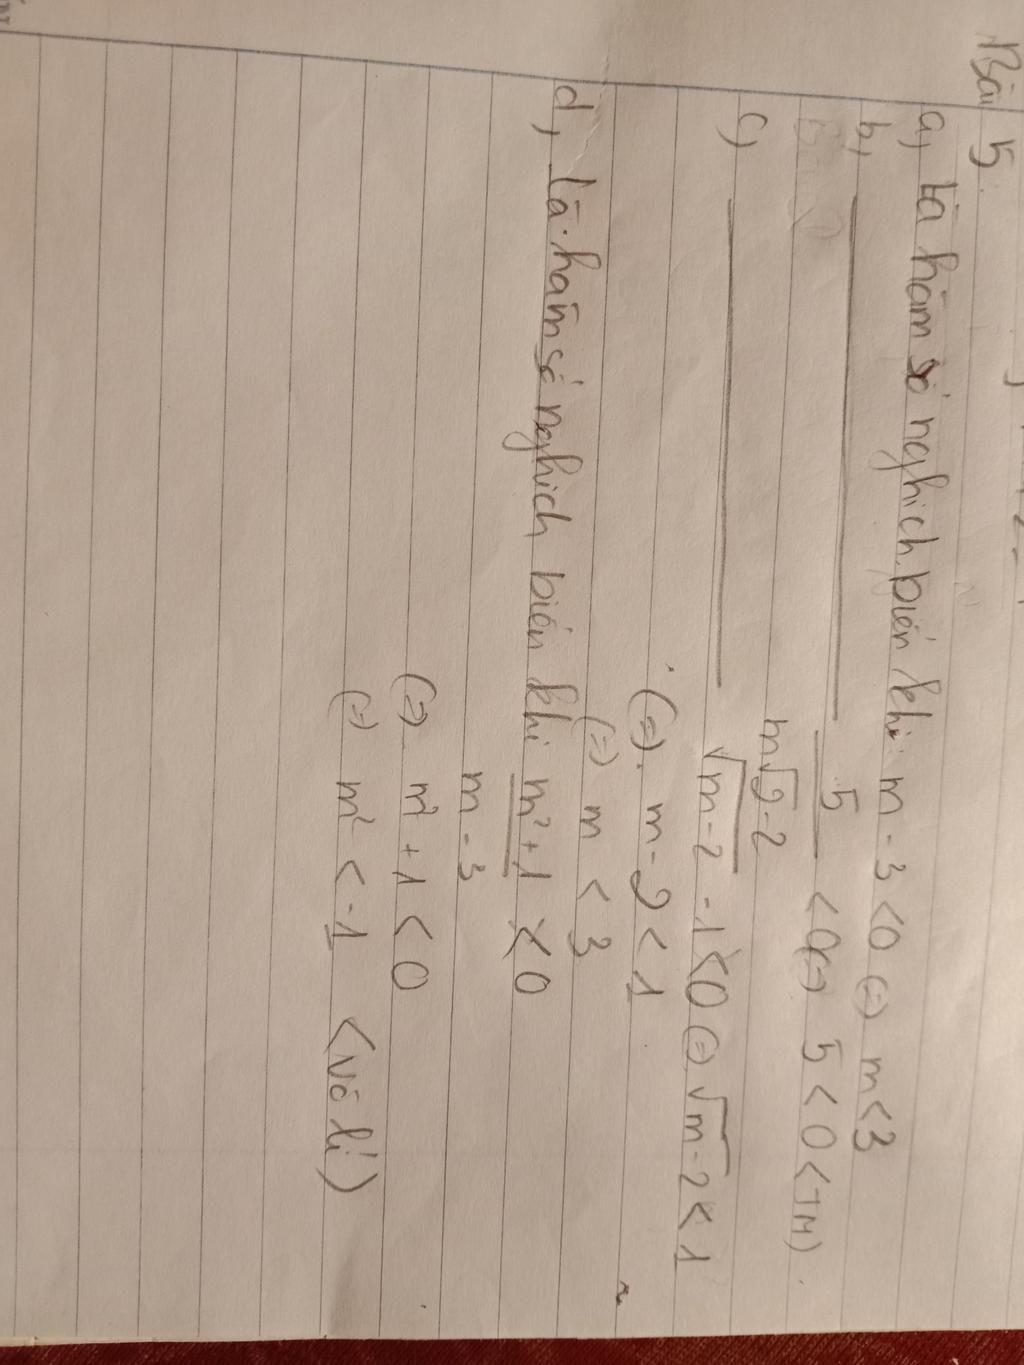 Bài 5.
a, Là hàm số nghịch biến khi m - 3 < 0 (=) m < 3
b, 5 / m√2 - 2 < 0 (=) 5 < 0 <TM)
c, √m-2 - 1 < 0 (=) √m-2 < 1
(=). m - 2 < 1
(=) m < 3
d, là hàm số nghịch biến khi m² + 1 / m - 3 < 0
(=) m² + 1 < 0
(=) m² < -1 <vô lí)